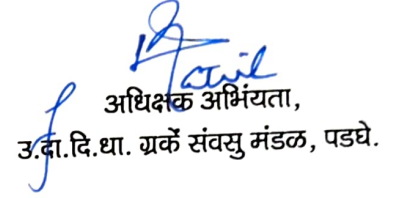 अधिक्षक अभिंयता,
उ.दा.दि.धा. ग्रकें संवसु मंडळ, पडघे.